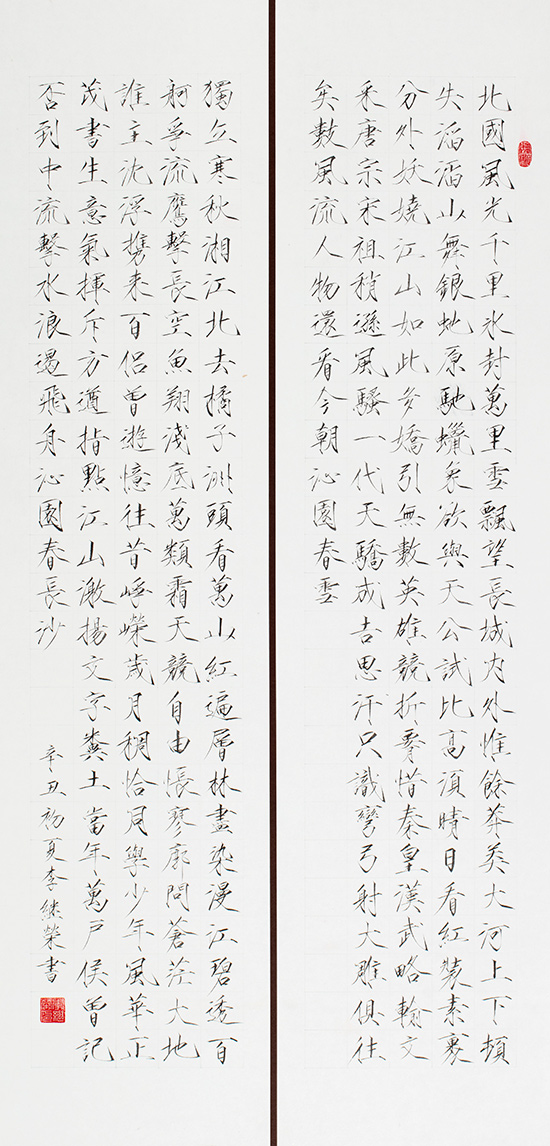 北國風光千里冰封萬里雪飄望長城内外惟餘莽莽大河上下頓
失滔滔山舞銀虵原馳蠟象欲與天公試比高須晴日看紅裝素裹
分外妖嬈江山如此多嬌引無數英雄競折腰惜秦皇漢武略輸文
采唐宗宋祖稍遜風騷一代天驕成吉思汗只識彎弓射大雕俱往
矣數風流人物還看今朝沁園春雪
獨立寒秋湘江北去橘子洲頭看萬山紅遍層林盡染漫江碧透百
舸爭流鷹擊長空魚翔淺底萬類霜天競自由悵寥廓問蒼茫大地
誰主沈浮攜来百侶曾遊憶往昔崢嶸歲月稠恰同學少年風華正
茂書生意氣揮斥方遒指點江山激揚文字糞土當年萬戶侯曾記
否到中流擊水浪遏飛舟沁園春長沙
辛丑初夏李継榮書